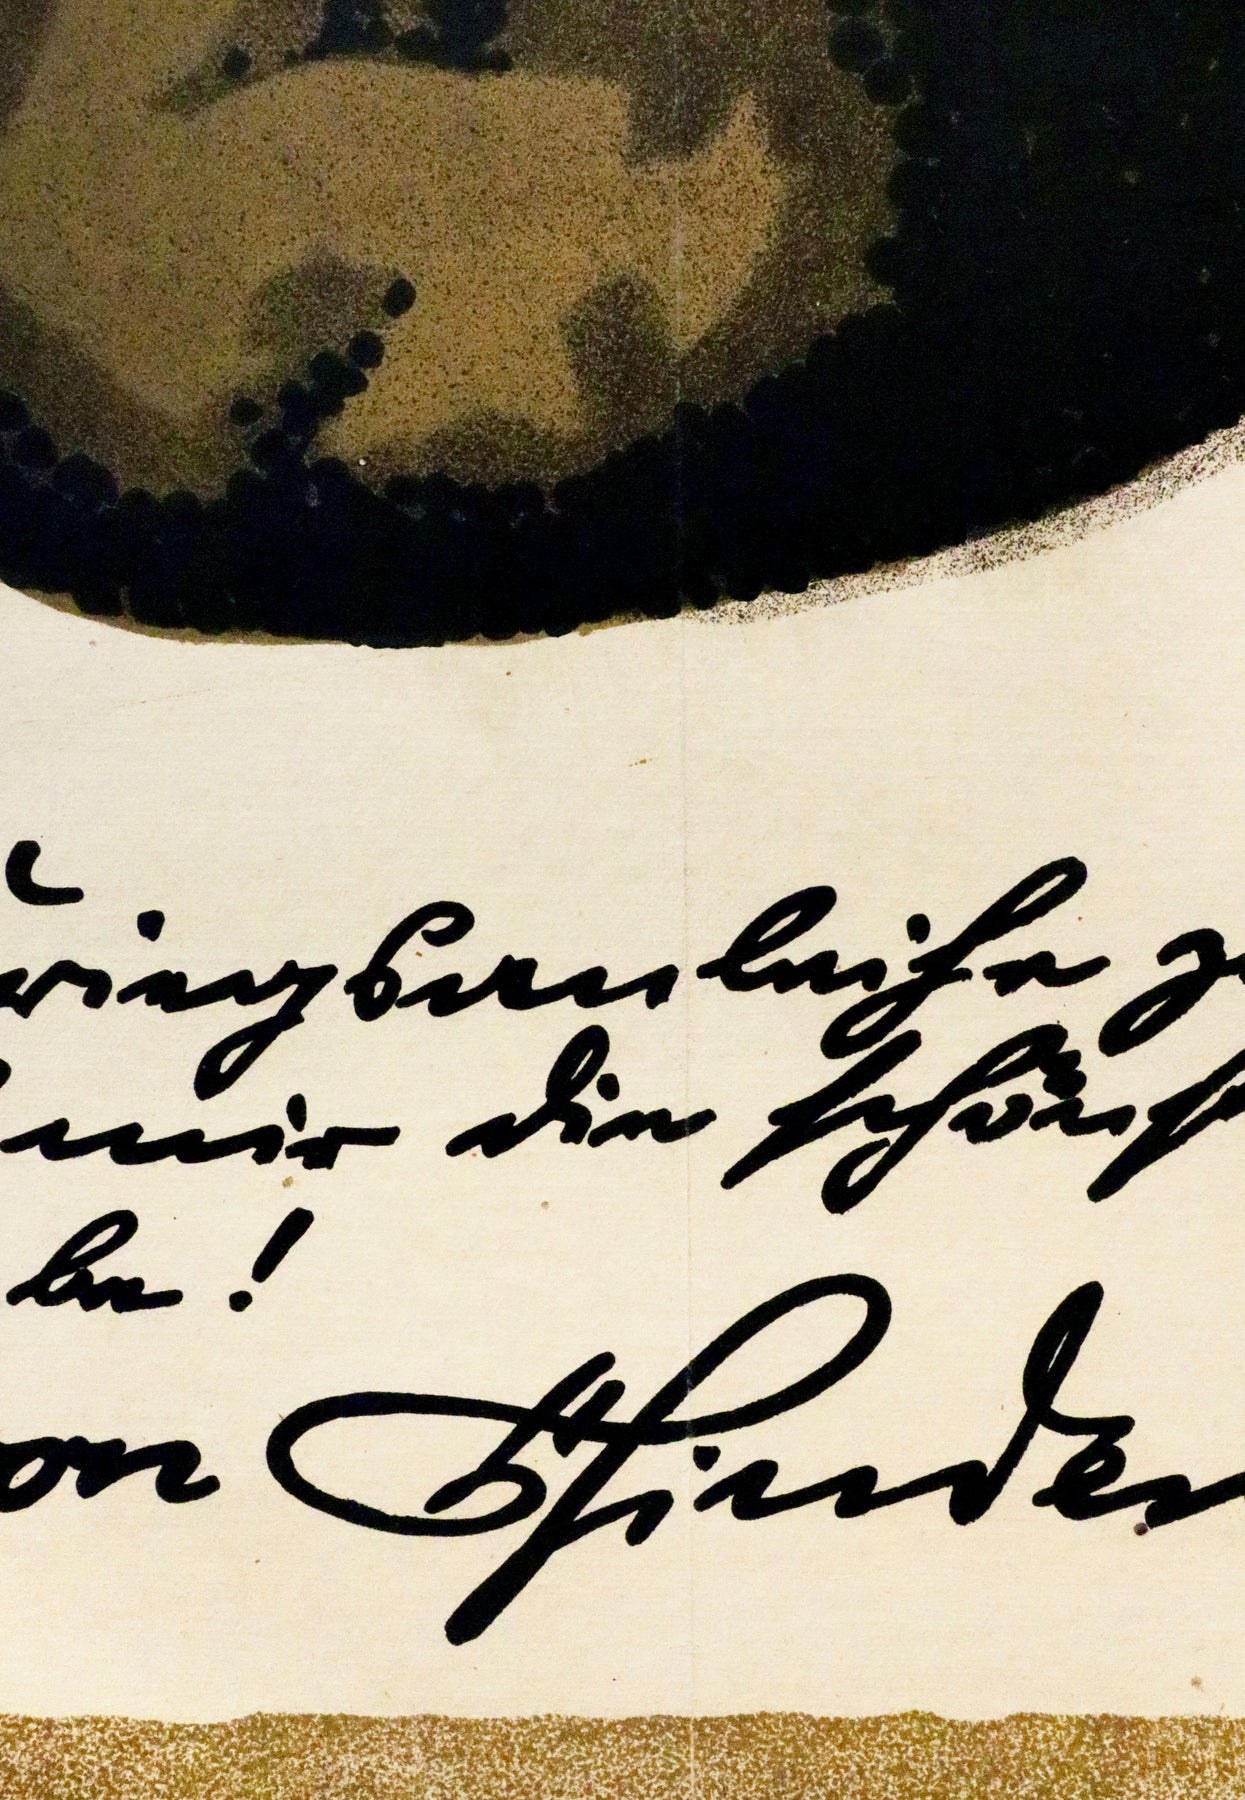 Kriegsanleihe z
mir die schönst
be!
von Hinden